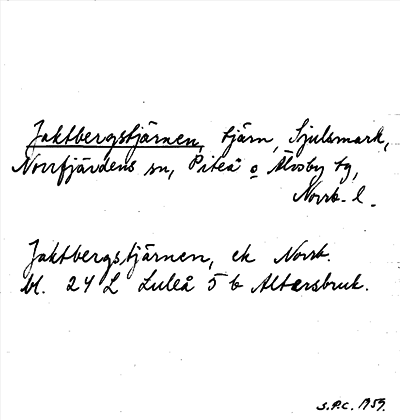 Jaktbergstjärnen, tjärn, Sjulsmark,
Norrfjärdens sn, Piteå o Älvsby tg,
Norrb. l.
Jaktbergstjärnen, ek Norrb.
bl. 24 L Luleå 5 b Altersbruk.
S.P.C. 1959.